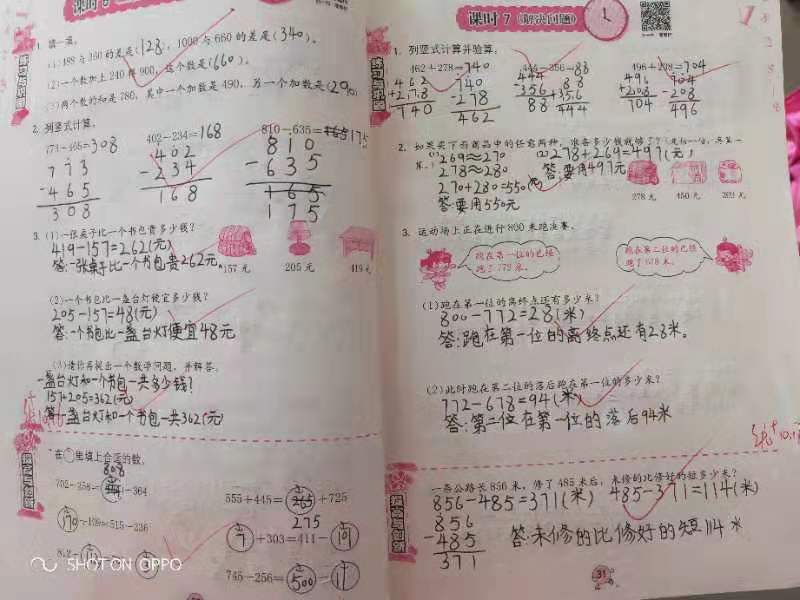 1. 填一填。
1000与660的差是(340)。
(2)一个数加上240得900,这个数是(660)。
(3)两个数的和是780,其中一个加数是490,另一个加数是(290)。
2. 列竖式计算。
402-234=168
402
-234
168
773
-465
308
810
-635
165
175
3. (1)一张桌子比一个书包贵多少钱?
419-157=262(元)
答:一张桌子比一个书包贵262元。
157元
205元
419元
(2)一个书包比一盏台灯便宜多少钱?
205-157=48(元)
答:一个书包比一盏台灯便宜48元
(3)请你再提出一个数学问题,并解答。
一盏台灯和一个书包一共多少钱?
157+205=362(元)
答:一盏台灯和一个书包一共362(元)
在○里填上合适的数。
808
555+445=265+725
275
+303=411-
745-256=500-11
SHOT ON OPPO
课时7
1. 列竖式计算并验算。
462+278=740
462
+278
740
740
-278
462
444-356=88
444
-356
88
88
+356
444
496+208=704
496
+208
704
704
-208
496
(1)269≈270
278≈280
270+280=550(元)
答:要用550元
(2)278+269=497(元)
答:要用497元
278元
450元
3. 运动场上正在进行800米跑决赛。
我在第一位的已经
跑了772米。
我在第二位的已经
跑了678米。
(1)跑在第一位的离终点还有多少米?
800-772=28(米)
答:跑在第一位的离终点还有28米。
(2)此时跑在第二位的落后跑在第一位的多少米?
772-678=94(米)
答:第二位在第一位的落后94米
一条公路长856米,修了485米后,未修的比修好的短多少米?
856-485=371(米)
485-371=114(米)
856
-485
371
答:未修的比修好的短114米
31